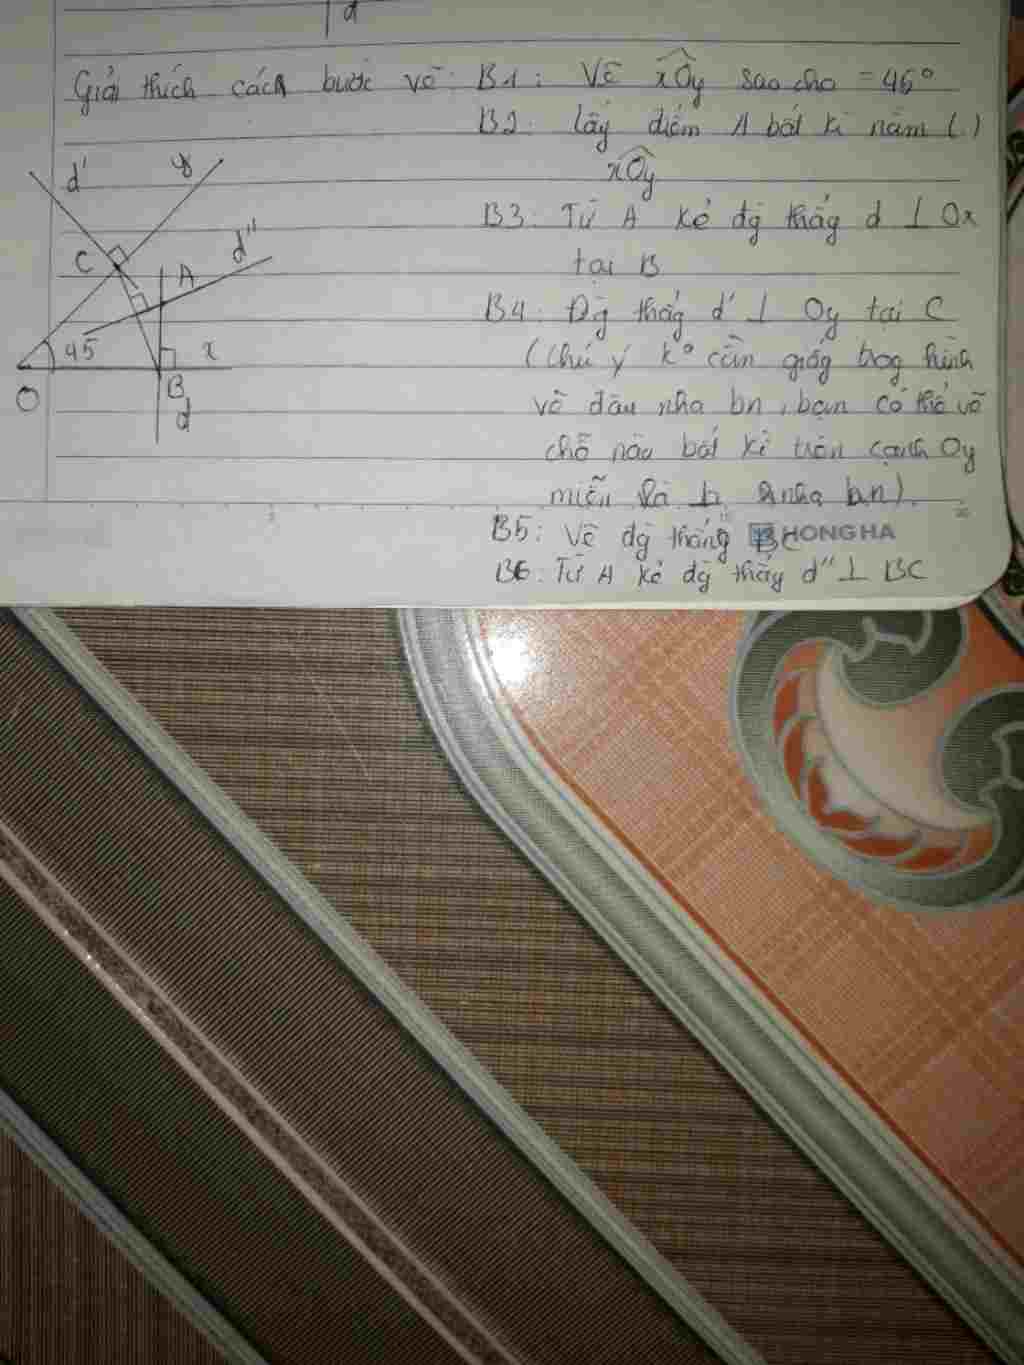 d
Giải thích cách bước vẽ: B1: Vẽ xOy sao cho = 45°
B2: lấy điểm A bất kì nằm (.)
xOy
B3: Từ A kẻ đg thẳg d ⊥ Ox
tại B
B4: Đg thẳg d' ⊥ Oy tại C
(chú ý k° cần giốg trog hình
vẽ đâu nha bn, bạn có thể vẽ
chỗ nào bất kì trên cạnh Oy
miễn là ⊥ nha bn).
B5: Vẽ đg thẳng BC
HONG HA
B6: Từ A kẻ đg thẳg d'' ⊥ BC
d' y
d''
C A
45 x
O B
d